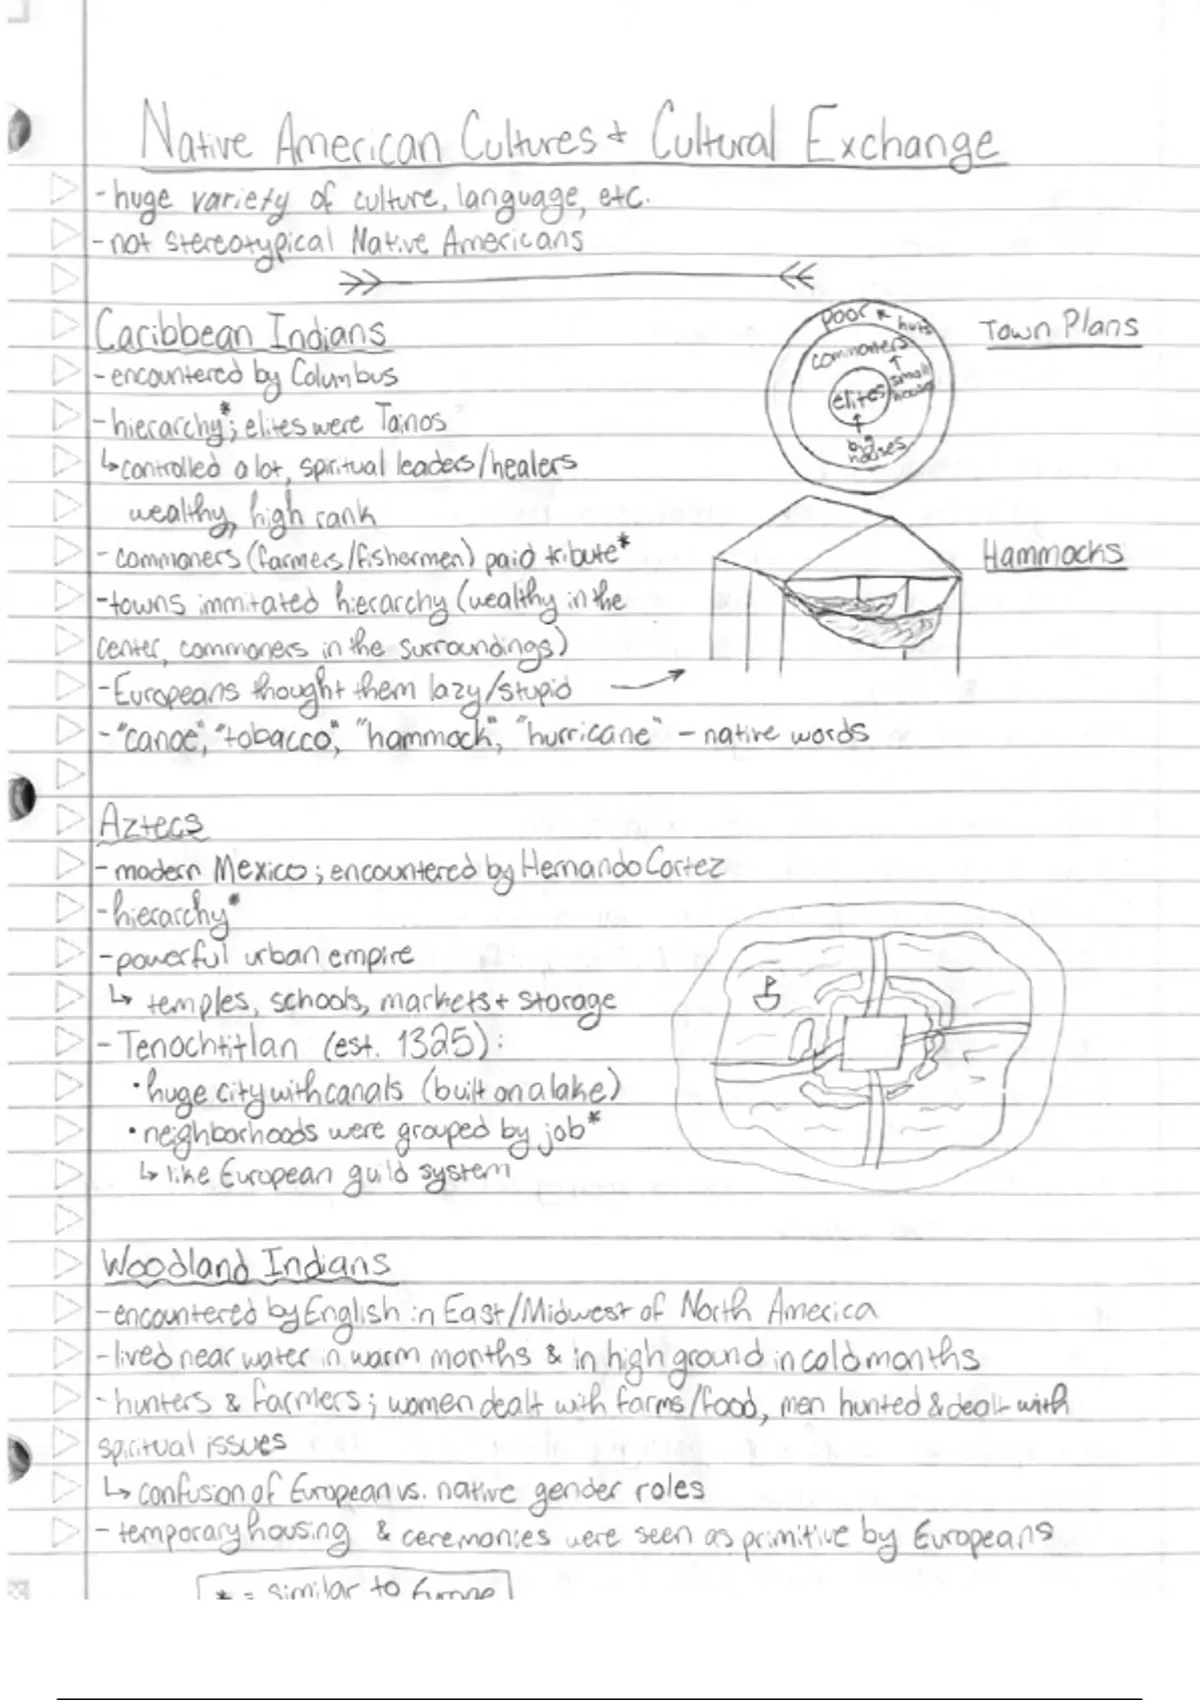 Native American Cultures + Cultural Exchange
- huge variety of culture, language, etc.
- not stereotypical Native Americans
Caribbean Indians
- encountered by Columbus
- hierarchy*; elites were Tainos
↳ controlled a lot, spiritual leaders/healers
wealthy, high rank
- commoners (farmers/fishermen) paid tribute*
- towns immitated hierarchy (wealthy in the
center, commoners in the surroundings)
- Europeans thought them lazy/stupid
- "canoe", "tobacco", "hammock", "hurricane" - native words
Town Plans
poor
huts
commoners
small
houses
elites
big
houses
Hammocks
Aztecs
- modern Mexico; encountered by Hernando Cortez
- hierarchy*
- powerful urban empire
↳ temples, schools, markets + storage
- Tenochtitlan (est. 1325):
• huge city with canals (built on a lake)
• neighborhoods were grouped by job*
↳ like European guild system
Woodland Indians
- encountered by English in East/Midwest of North America
- lived near water in warm months & in high ground in cold months
- hunters & farmers; women dealt with farms/food, men hunted & dealt with
spiritual issues
↳ confusion of European vs. native gender roles
- temporary housing & ceremonies were seen as primitive by Europeans
* = similar to Europe